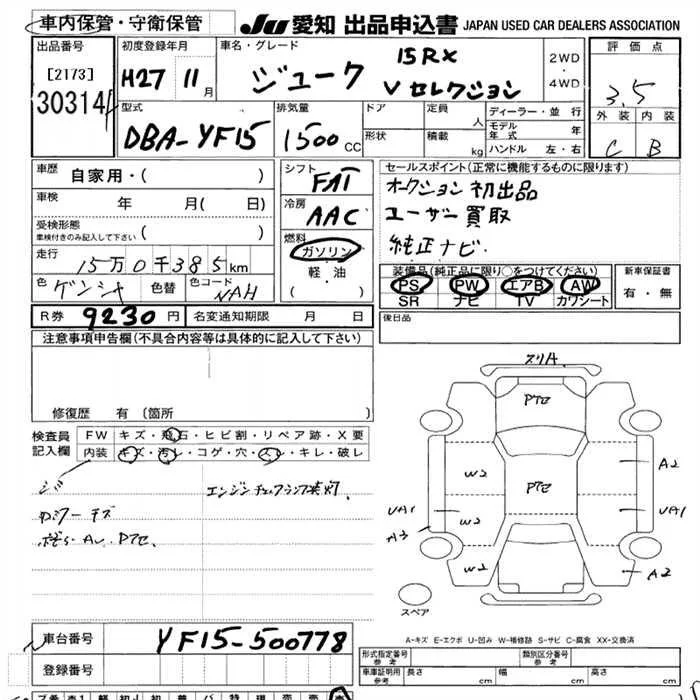 車内保管・守衛保管
JU 愛知 出品申込書 JAPAN USED CAR DEALERS ASSOCIATION
出品番号
[2173]
30314
初度登録年月
H27 11月
車名・グレード
ジューク 15RX
V セレクション
2WD
・
4WD
評価点
3.5
外装 内装
C B
型式
DBA-YF15
排気量
1500 CC
ドア
形状
定員 人
積載 kg
ディーラー・並行
モデル年式 年
ハンドル 左・右
車歴
自家用・( )
車検 年 月( 日)
受検形態
車検付きのみ記入して下さい ( )
走行
15万0千385km
色 ゲンシャ 色替 色コード NAH
シフト
FAT
冷房
AAC
燃料
ガソリン
軽・油
( )
セールスポイント(正常に機能するものに限ります)
オークション初出品
ユーザー買取
純正ナビ
装備品(純正品に限り○をつけてください)
PS PW エアB AW
SR ナビ TV カワシート
新車保証書
有・無
R券 9230円 名変通知期限 月 日
後日品
注意事項申告欄(不具合内容等は具体的に記入して下さい)
修復歴 有(箇所
検査員
記入欄
FW キズ・飛石・ヒビ割・リペア跡・X要
内装 キズ・汚レ・コゲ・穴・スレ・キレ・破レ
エンジンチェックランプ点灯.
スリA
PTセ
PTセ
W2
W2
W2
A2
UA1
UA1
A3
A2
スペア
A-キズ E-エクボ U-凹み W-補修跡 S-サビ C-腐食 XX-交換済
車台番号 YF15-500778
登録番号
形式指定番号
参考
類別区分番号
参考
車庫証明用
参考
長さ 幅 高さ